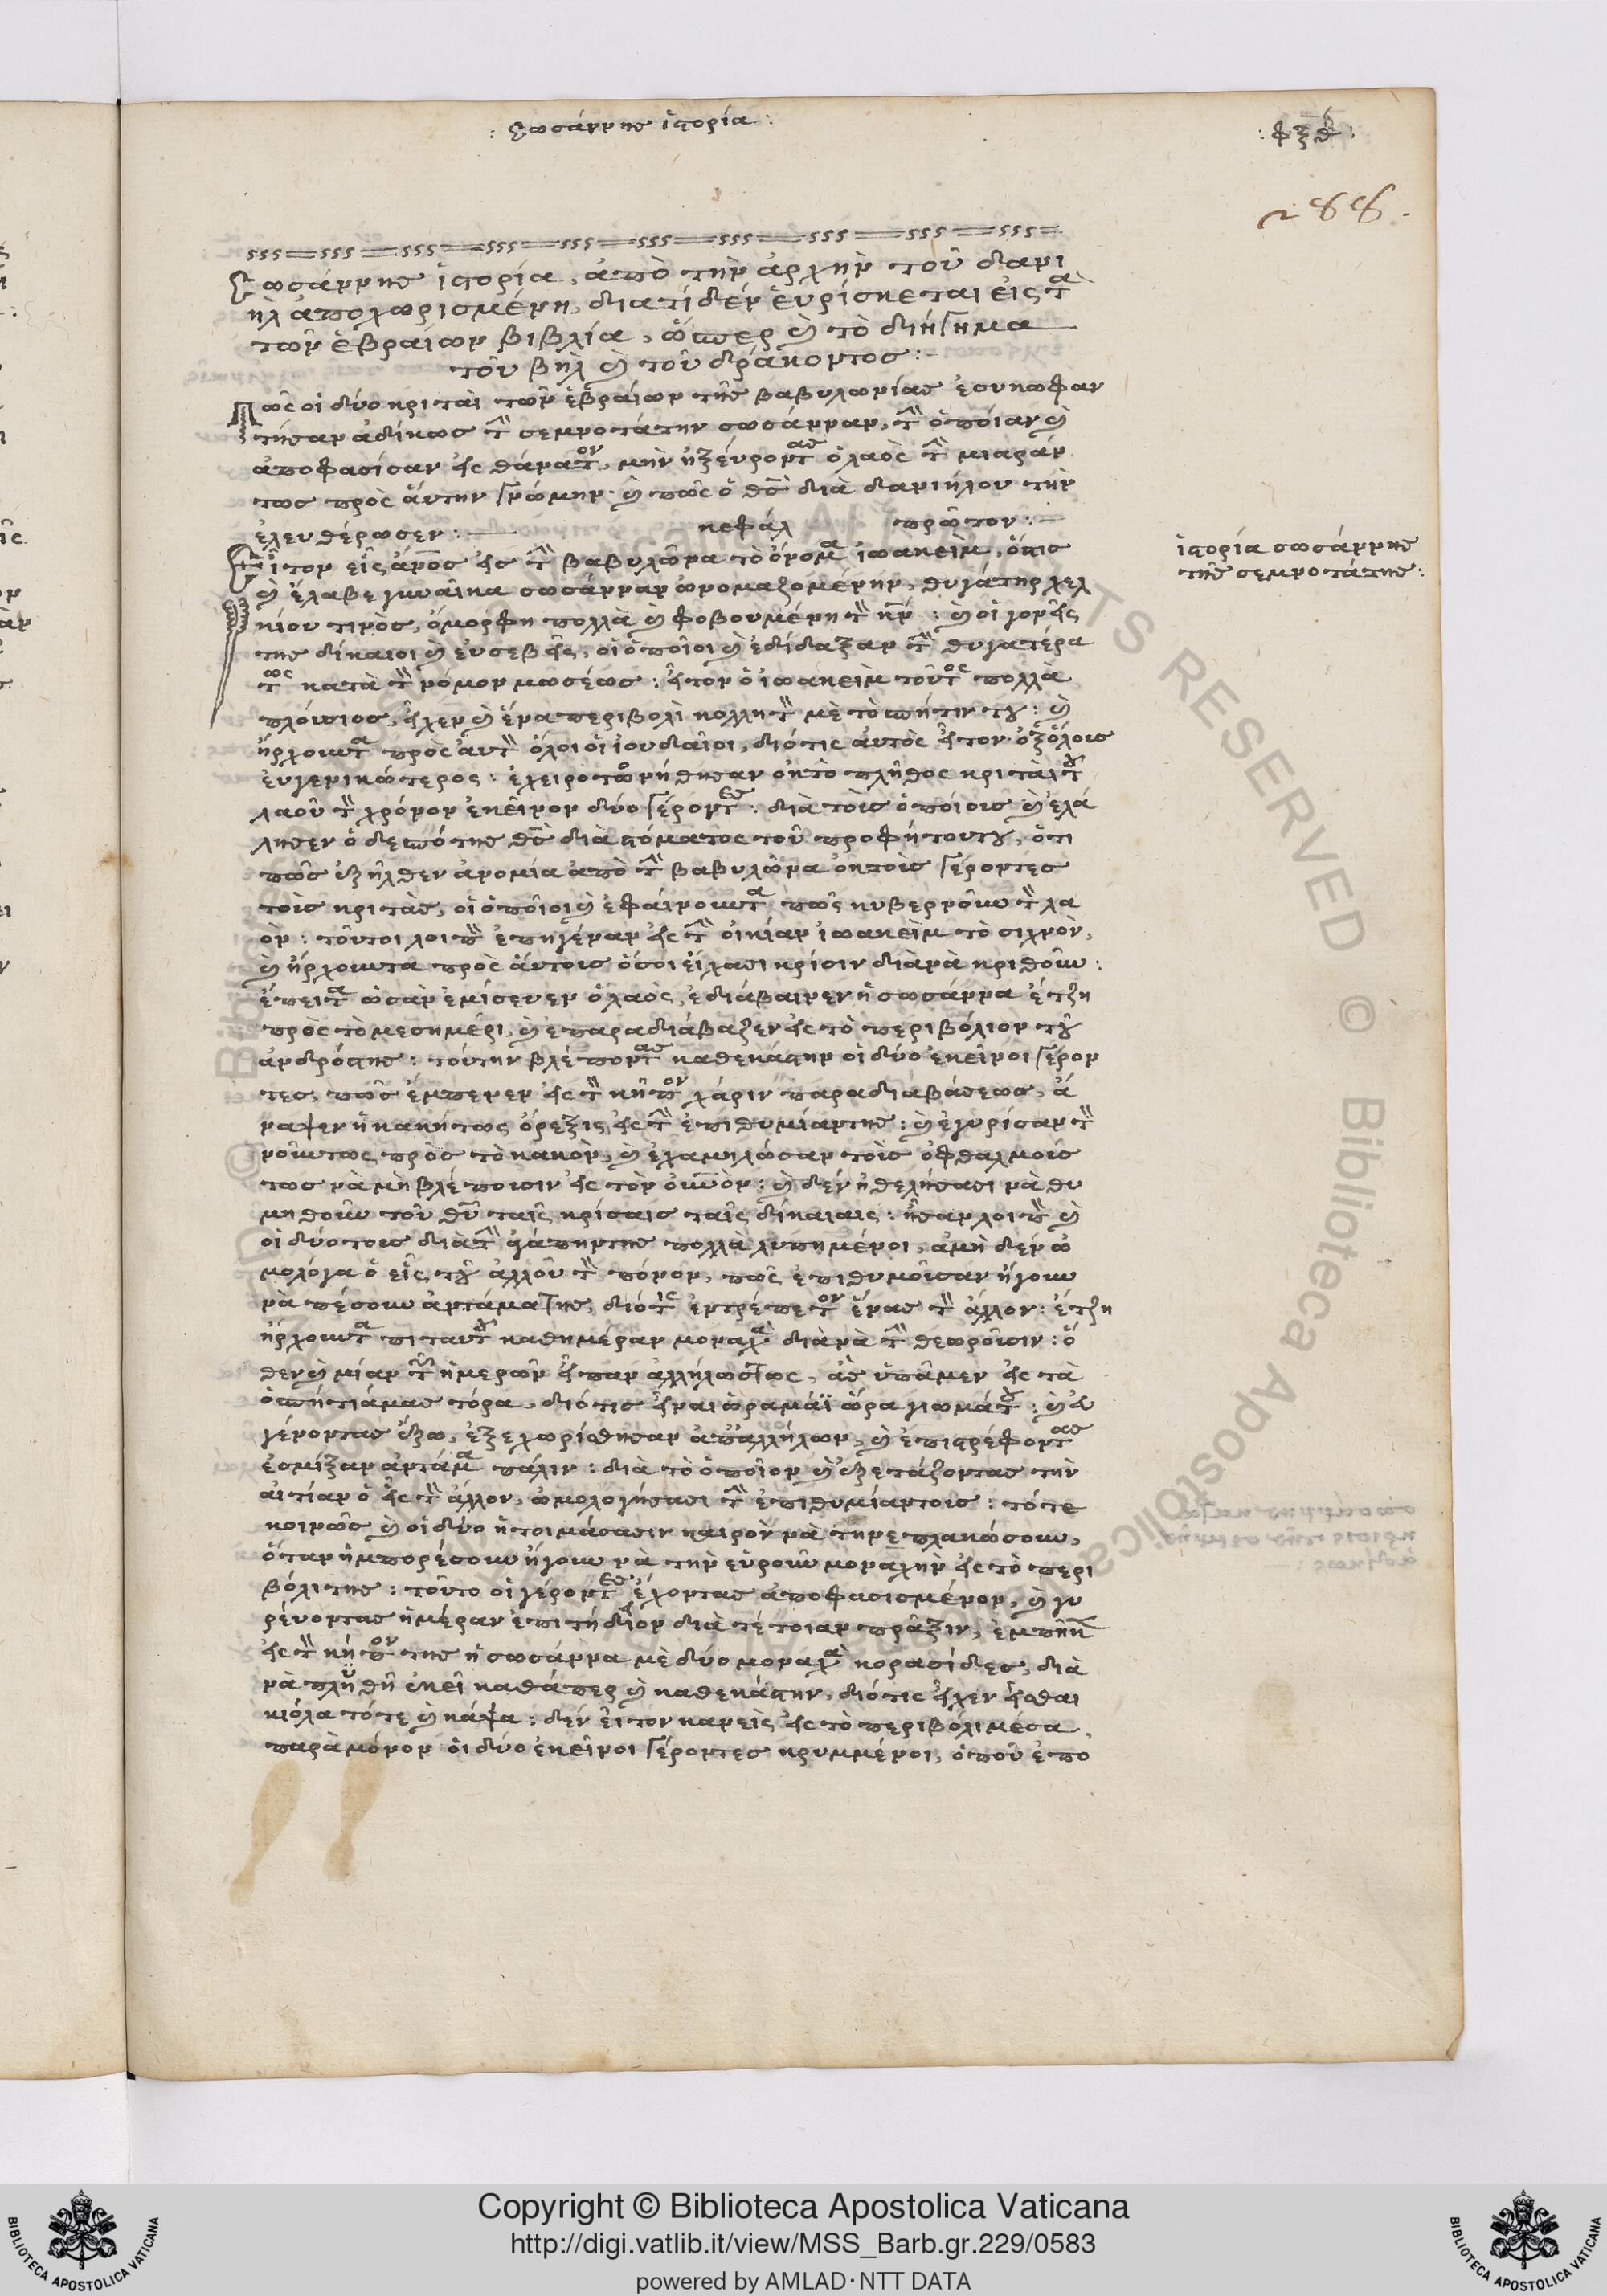 : Σωσάννης ἱστορία :
: φξθ :
288.
Σωσάννης ἱστορία, ἀπὸ τὴν ἀρχὴν τοῦ δανι
ὴλ ἀποχωρισμένη, διατὶ δὲν ἑυρίσκεται εἰς τὰ
τῶν ἑβραίων βιβλία, ὥσπερ καὶ τὸ διήγημα
τοῦ βὴλ καὶ τοῦ δράκοντος :
Πῶς οἱ δύο κριταὶ τῶν ἑβραίων τῆς βαβυλωνίας ἐσυκωφαν
τήσαν ἀδίκως τὴν σεμνοτάτην σωσάνναν, τὴν ὁποίαν καὶ
ἀποφασίσαν εἰς θάνατον, μὴν ἠξεύροντας ὁ λαὸς τὴν μιαράν
τως πρὸς ἄυτην γνώμην· καὶ πῶς ὁ θς διὰ δανιήλου τὴν
ἐλευθέρωσεν : κεφάλ πρῶτον :
ἱστορία σωσάννης
τῆς σεμνοτάτης :
Εἶτον εἷς ἄνος εἰς τὴν βαβυλῶνα τὸ ὄνομα ἰωακεὶμ, ὅστις
καὶ ἔλαβε γυναῖκα σωσάνναν ὠνομαζομένην, θυγάτηρ χελ
κίου τινὸς, ὄμορφη πολλὰ καὶ φοβουμένη τὸν κν : καὶ οἱ γονεῖς
της δίκαιοι καὶ ἐυσεβεῖς, οἱ ὁποῖοι καὶ ἐδίδαξαν τὴν θυγατέρα
τως κατὰ τὸν νόμον μωσέως : εἶτον ὁ ἰωακεὶμ τοῦτος πολλὰ
πλόυσιος, εἶχεν καὶ ἕνα περιβολὶ κολλητὸν μὲ τὸ σπήτιν του : καὶ
ἤρχουντα πρὸς ἀυτὸν ὅλοι οἱ ἰουδαῖοι, διότις ἀυτὸς εἶτον ὀξ ὅλους
ἐυγενικώτερος : ἐχειροτωνήθησαν ὀκ τὸ πλῆθος κριταὶ τοῦ
λαοῦ τὸν χρόνον ἐκεῖνον δύο γέροντες : διὰ τοὺς ὁποίους καὶ ἐλά
λησεν ὁ δεσπότης θς διὰ στόματος τοῦ προφήτου του, ὅτι
πῶς ἐξῆλθεν ἀνομία ἀπὸ τὴν βαβυλῶνα ὀκ τοὺς γέροντες
τοὺς κριτὰς, οἱ ὁποῖοι καὶ ἐφαίνουντα πῶς κυβερνοῦν τὸν λα
ὸν : τοῦτοι λοιπὸν ἐπηγέναν εἰς τὴν οἰκίαν ἰωακεὶμ τὸ συχνὸν,
καὶ ἤρχουντα πρὸς ἄυτους ὅσοι εἴχασι κρίσιν διὰ νὰ κριθοῦν :
ἔπειτα ὡσὰν ἐμίσευεν ὁ λαὸς, ἐδιάβαινεν ἡ σωσάννα ἔτζη
πρὸς τὸ μεσημέρι, καὶ ἐπαραδιάβαζεν εἰς τὸ περιβόλιον τοῦ
ἀνδρός της : τούτην βλέποντας καθεκάστην οἱ δύο ἐκεῖνοι γέρον
τες, πῶς ἔμπενεν εἰς τὸν κῆπον χάριν παραδιαβάσεως, ἄ
ναψεν ἡ κακή τως ὄρεξις εἰς τὴν ἐπιθυμίαν της : καὶ ἐγυρίσαν τὸν
νοῦν τως πρὸς τὸ κακὸν, καὶ ἐχαμηλώσαν τοὺς ὀφθαλμούς
τως νὰ μὴ βλέπουσιν εἰς τὸν οὐνὸν : καὶ δὲν ἠθελήσασι νὰ θυ
μηθοῦν τοῦ θυ ταῖς κρίσαις ταῖς δίκαιαις : ἦσαν λοιπὸν καὶ
οἱ δύο τους διὰ τὴν ἀγάπην της πολλὰ λυπημένοι, ἀμὴ δὲν ὡ
μολόγα ὁ εἷς τοῦ ἀλλοῦ τὸν πόνον, πῶς ἐπιθυμοῦσαν ἤγουν
νὰ πέσουν ἀντάμα της, διότις ἐντρέπετον ἕνας τὸν ἄλλον : ἔτζη
ἤρχουντα πιταυτοῦ καθημέραν μοναχὰ διὰ νὰ τὴν θεωροῦσιν : ὅ
θεν καὶ μίαν τῶν ἡμερῶν εἶπαν ἀλλήλως τως, ἂς ὑπᾶμεν εἰς τὰ
ὁσπήτιά μας τόρα, διότις εἶναι ὥρα μάϊ ὥρα γιωμάτος : καὶ εὐ
γένοντας ἔξω, ἐξεχωρίσθησαν ἀπ ἀλλήλων, καὶ ἐπιστρέφοντας
ἐσμίξαν ἀντάμα πάλιν : διὰ τὸ ὁποῖον καὶ ἐξετάζοντας τὴν
αἰτίαν ὁ εἷς τὸν ἄλλον, ὡμολογήσασι τὴν ἐπιθυμίαν τους : τότε
κοινῶς καὶ οἱ δύο ἡτοιμάσασιν καιρὸν νὰ τηνε πλακώσουν,
ὅταν ἡμπορέσουν ἤγουν νὰ τὴν εὑροῦν μοναχὴν εἰς τὸ περι
βόλι της : τοῦτο οἱ γέροντες ἔχοντας ἀποφασισμένον, καὶ γυ
ρέυοντας ἡμέραν ἐπιτήδιον διὰ τέτοιαν πρᾶξιν, ἐμπῆκ
εἰς τὸν κῆπον της ἡ σωσάννα μὲ δύο μοναχὰ κορασίδες, διὰ
νὰ πλυθῆ ἐκεῖ καθάπερ καὶ καθεκάστην, διότις εἶχεν εἶσθαι
κιόλα τότε καὶ κάψα : δὲν εἶτον κανεὶς εἰς τὸ περιβόλι μέσα,
παρὰ μόνον οἱ δύο ἐκεῖνοι γέροντες κρυμμένοι, ὁποῦ ἐπο
Copyright © Biblioteca Apostolica Vaticana
http://digi.vatlib.it/view/MSS_Barb.gr.229/0583
powered by AMLAD·NTT DATA
BIBLIOTECA APOSTOLICA VATICANA
BIBLIOTECA APOSTOLICA VATICANA